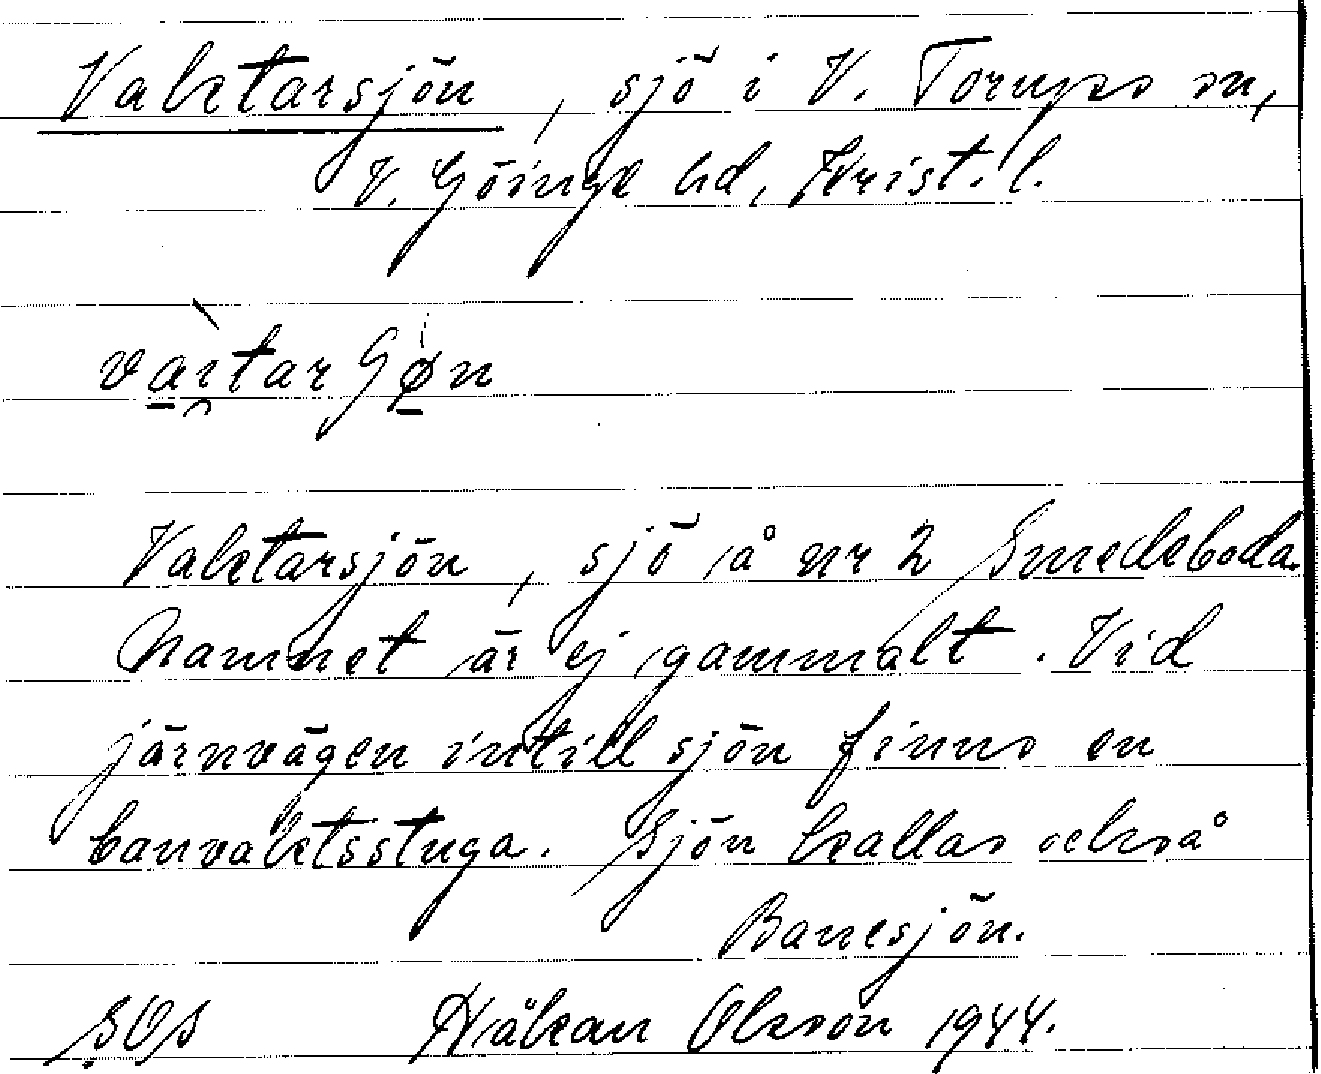 Vaktarsjön, sjö i V. Torups sn,
V. Göinge hd, Krist. l.
Vaktarsjön, sjö å nr 2 Smedeboda.
Namnet är ej gammalt. Vid
järnvägen intill sjön finns en
banvaktsstuga. Sjön kallas också
Banesjön.
SOs Håkan Olsson 1944.